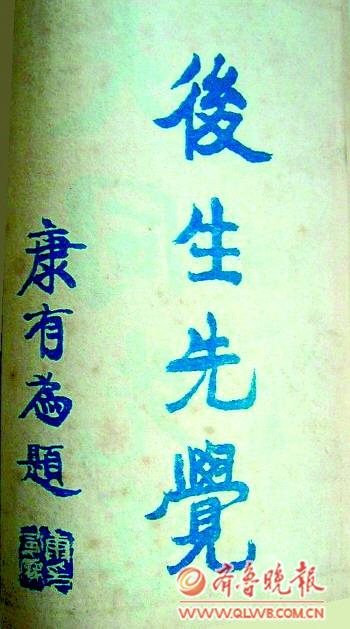 後生先覺
康有為題
齊魯晚報
WWW.QLWB.COM.CN